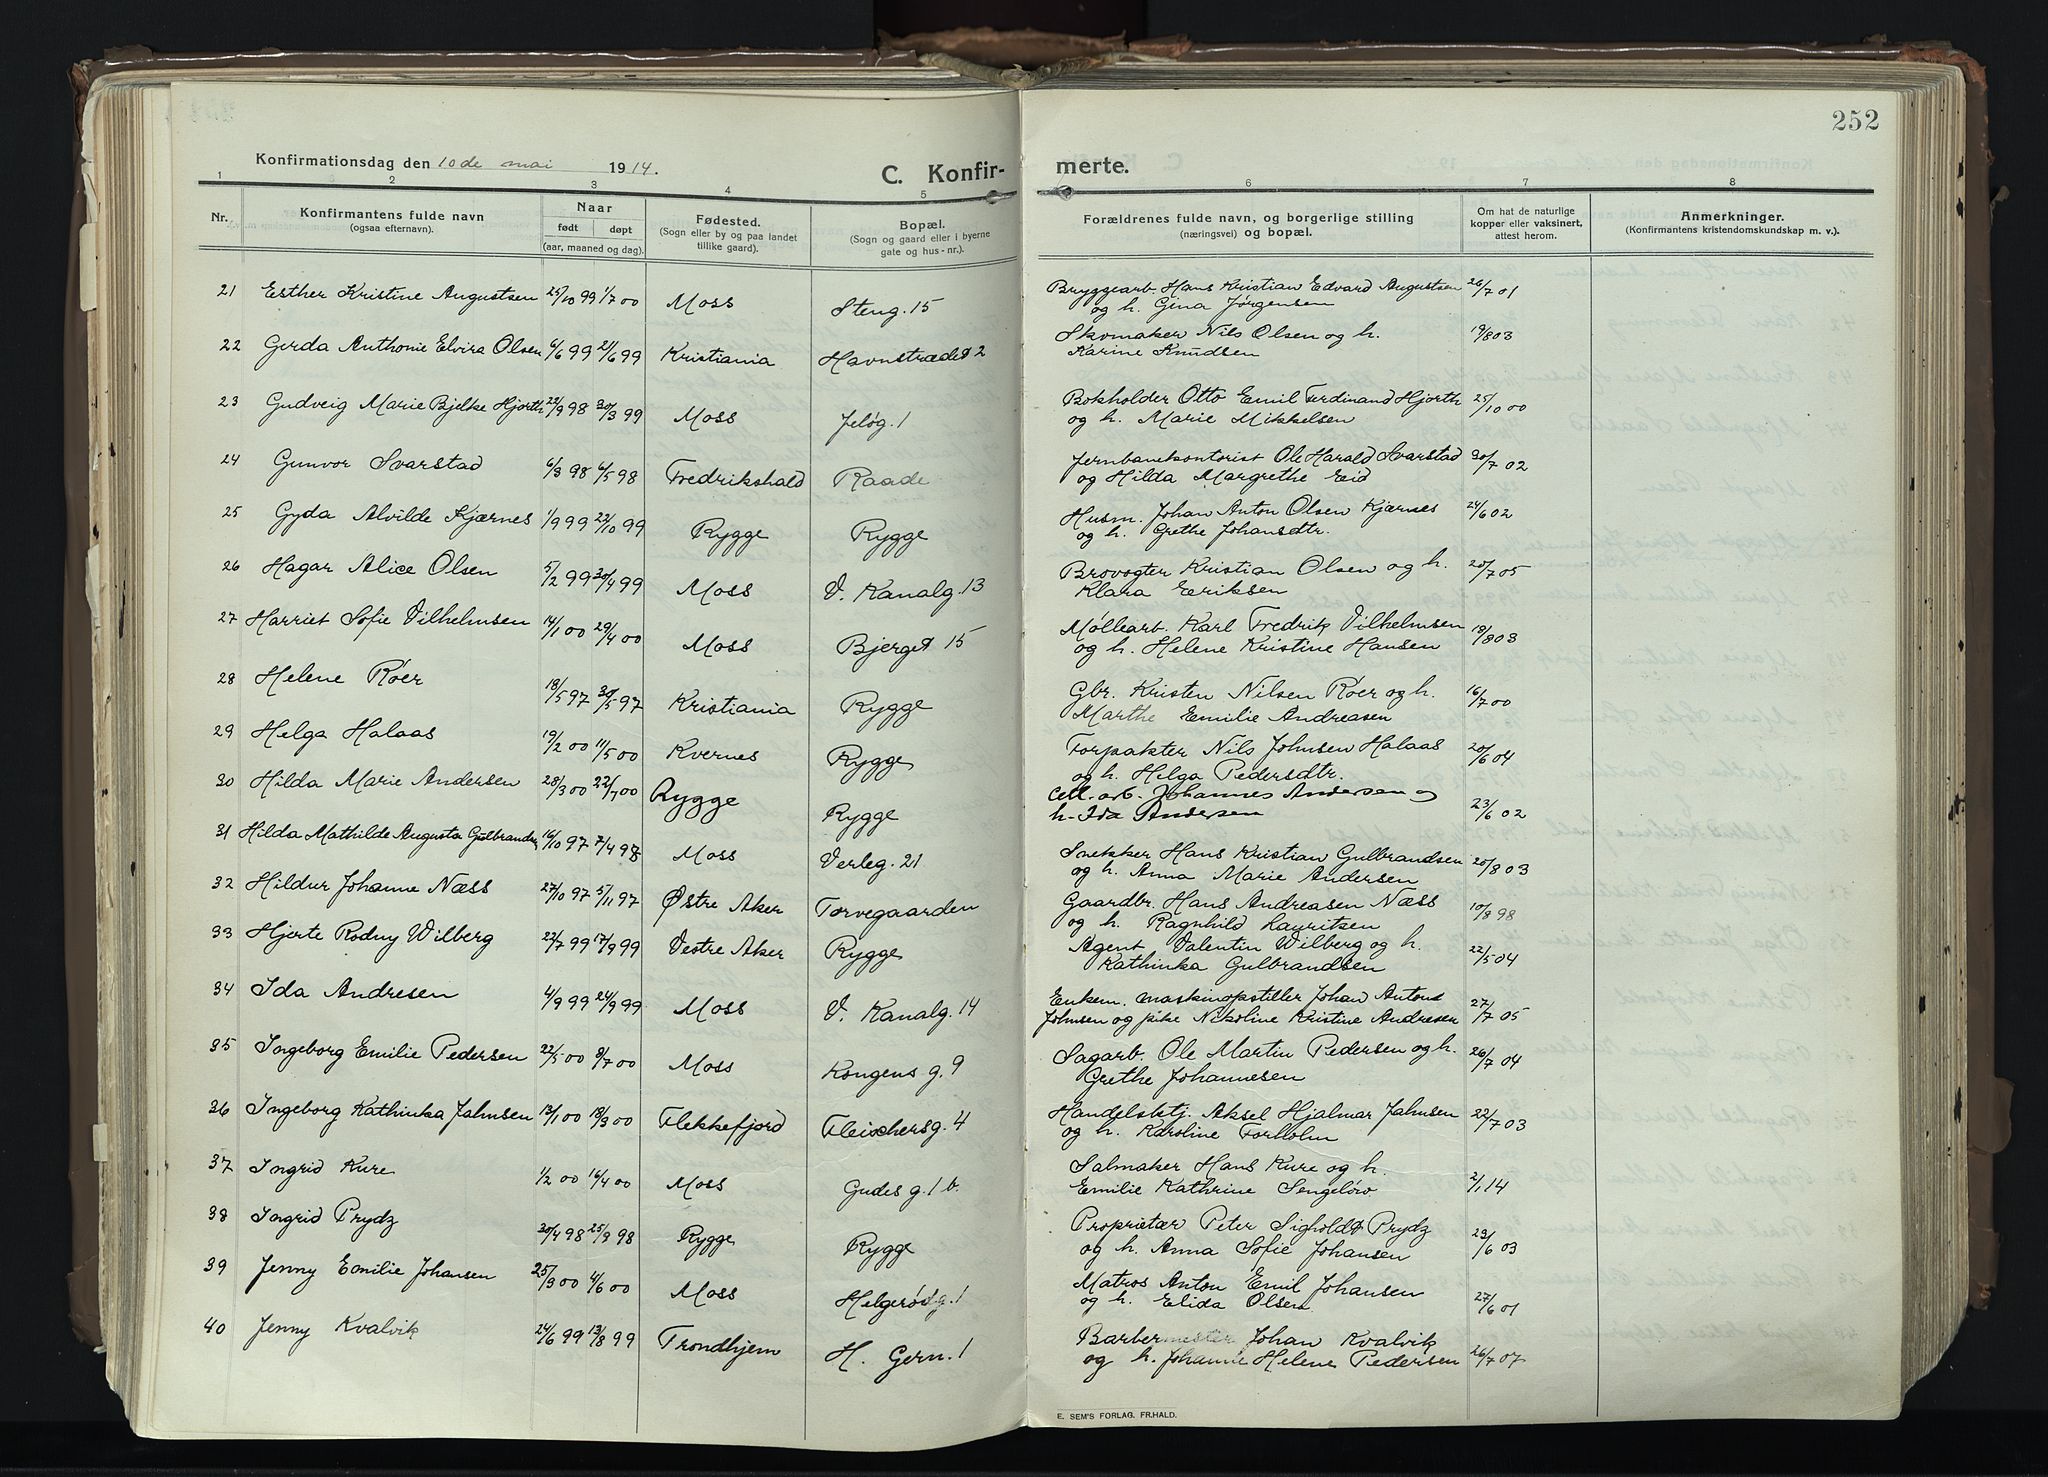 252
Konfirmationsdag den 10de mai 1914.
C. Konfir-
merte.
1 2 3 4 5 6 7 8
Nr.
Konfirmantens fulde navn
(ogsaa efternavn).
Naar
født døpt
(aar, maaned og dag).
Fødested.
(Sogn eller by og paa landet
tillike gaard).
Bopæl.
(Sogn og gaard eller i byerne
gate og hus-nr.).
Forældrenes fulde navn, og borgerlige stilling
(næringsvei) og bopæl.
Om hat de naturlige
kopper eller vaksinert,
attest herom.
Anmerkninger.
(Konfirmantens kristendomskundskap m. v.).
21 Esther Kristine Augustsen 25/10 99 1/7 00 Moss Steng. 15 Bryggearb. Hans Kristian Edvard Augustsen 26/7 01
og h. Gina Jørgensen
22 Gerda Anthonie Elvira Olsen 6/6 99 21/6 99 Kristiania Havnstrædet 2 Skomaker Nils Olsen og h. 19/8 03
Karine Knudsen
23 Gudveig Marie Bjelke Hjorth 22/9 98 30/3 99 Moss Jeløg. 1 Bokholder Otto Emil Ferdinand Hjorth 25/10 00
og h. Marie Mikkelsen
24 Gunvor Svarstad 6/3 98 6/5 98 Fredrikshald Raade Jernbanekontorist Ole Harald Svarstad 30/7 02
og Hilda Margrethe Eid
25 Gyda Alvilde Kjærnes 1/9 99 22/10 99 Rygge Rygge Husm. Johan Anton Olsen Kjærnes 24/6 02
og h. Grethe Johansdtr.
26 Hagar Alice Olsen 5/2 99 30/4 99 Moss V. Kanalg. 13 Brovogter Kristian Olsen og h. 20/7 05
Klara Eriksen
27 Harriet Sofie Vilhelmsen 14/1 00 29/4 00 Moss Bjerget 15 Møllearb. Karl Fredrik Vilhelmsen 18/8 03
og h. Helene Kristine Hansen
28 Helene Röer 18/5 97 30/5 97 Kristiania Rygge Gbr. Kristen Nilsen Röer og h. 16/7 00
Marthe Emilie Andreasen
29 Helga Halaas 19/2 00 11/5 00 Kvernes Rygge Forpakter Nils Johnsen Halaas 20/6 04
og h. Helga Pedersdtr.
30 Hilda Marie Andersen 28/3 00 22/7 00 Rygge Rygge Cell. arb. Johannes Andersen og
h. Ida Andersen 23/6 02
31 Hilda Mathilde Augusta Gulbrandsen 16/10 97 7/4 98 Moss Verleg. 21 Snekker Hans Kristian Gulbrandsen 20/8 03
og h. Anna Marie Andersen
32 Hildur Johanne Næss 27/10 97 5/11 97 Østre Aker Torvegaarden Gaardbr. Hans Andreasen Næss 10/8 98
og h. Ragnhild Lauritsen
33 Hjerte Rodny Wilberg 22/7 99 17/9 99 Vestre Aker Rygge Agent Valentin Wilberg og h. 22/5 04
Kathinka Gulbrandsen
34 Ida Andresen 4/9 99 24/9 99 Moss V. Kanalg. 14 Enkem. maskinopstiller Johan Anton
Johnsen og pike Nikoline Kristine Andresen 27/7 05
35 Ingeborg Emilie Pedersen 22/5 00 8/7 00 Moss Kongens g. 9 Sagarb. Ole Martin Pedersen og h. 26/7 04
Grethe Johannesen
36 Ingeborg Kathinka Jahnsen 13/1 00 18/3 00 Flekkefjord Fleischersg. 4 Handelsbetj. Aksel Hjalmar Jahnsen 22/7 03
og h. Karoline Forholm
37 Ingrid Kure 1/2 00 16/4 00 Moss Gudes g. 1 b. Salmaker Hans Kure og h.
Emilie Kathrine 2/1 14
38 Ingrid Prydz 30/4 98 25/9 98 Rygge Rygge Proprietær Peter Sigholdt Prydz 23/6 03
og h. Anna Sofie Johansen
39 Jenny Emilie Johansen 25/3 00 4/6 00 Moss Helgerødg. 1 Matros Anton Emil Johansen
og h. Elida Olsen 27/6 01
40 Jenny Kvalvik 24/6 99 13/8 99 Trondhjem H. Gern. 1 Barbermester Johan Kvalvik
og h. Johanne Helene Pedersen 26/7 07
E. SEM'S FORLAG. FR.HALD.